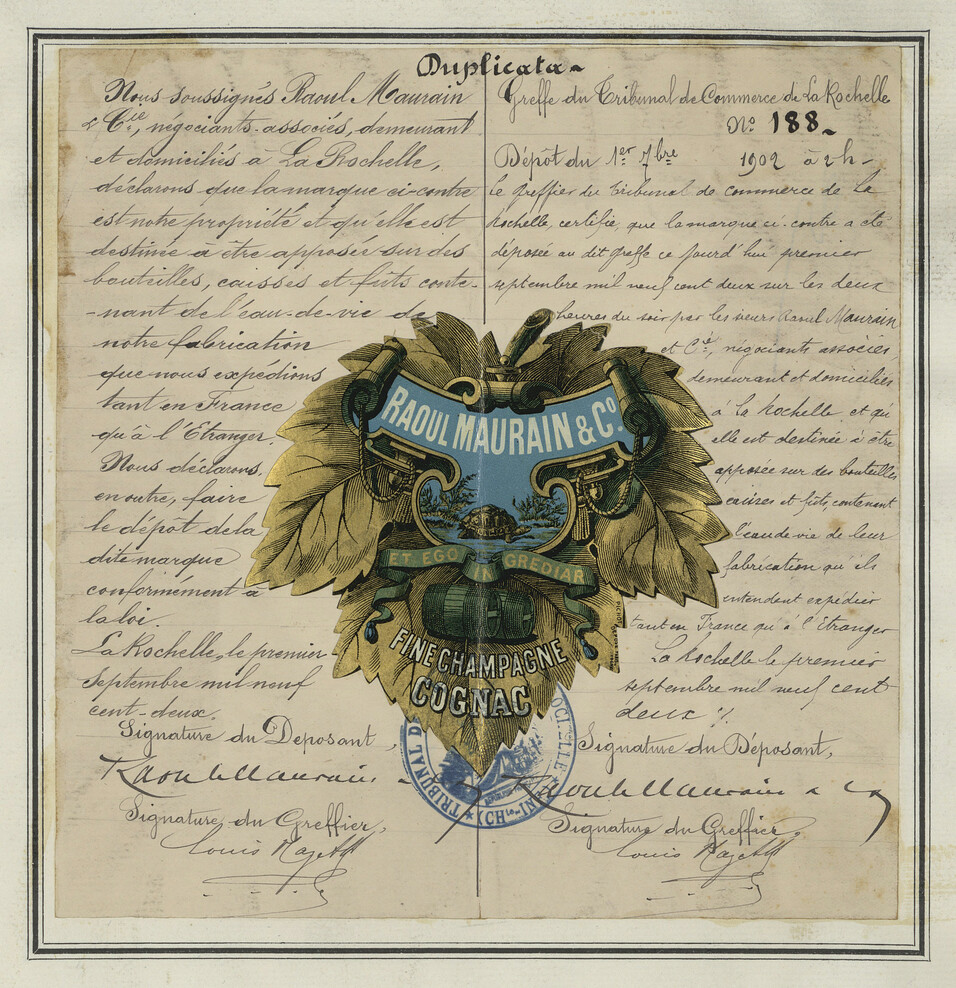 Duplicata
Nous soussignés Raoul Maurain
& Cie, négociants-associés, demeurant
et domiciliés à La Rochelle,
déclarons que la marque ci-contre
est notre propriété et qu'elle est
destinée à être apposée sur des
bouteilles, caisses et fûts conte-
-nant de l'eau-de-vie de
notre fabrication
que nous expédions
tant en France
qu'à l'Etranger.
Nous déclarons,
en outre, faire
le dépôt de la
dite marque
conformément à
la loi.
La Rochelle, le premier
Septembre mil neuf
cent-deux.
Signature du Déposant,
Raoul Maurain
Signature du Greffier,
Louis
Greffe du Tribunal de Commerce de La Rochelle
No 188
Dépôt du 1er 7bre 1902 à 2h
Le greffier du Tribunal de commerce de La
Rochelle, certifie, que la marque ci-contre a été
déposée au dit greffe ce jourd'hui premier
septembre mil neuf cent deux sur les deux
heures du soir par les sieurs Raoul Maurain
et Cie, négociants associés,
demeurant et domiciliés
à La Rochelle et qu'
elle est destinée à être
apposée sur des bouteilles
caisses et fûts, contenant
l'eau de vie de leur
fabrication qu'ils
entendent expédier
tant en France qu'à l'Etranger
La Rochelle le premier
septembre mil neuf cent
deux
Signature du Déposant,
Raoul Maurain & Cie
Signature du Greffier,
Louis
RAOUL MAURAIN & Co.
ET EGO IN GREDIAR
FINE CHAMPAGNE
COGNAC
TRIBUNAL D
(CH.te-IN